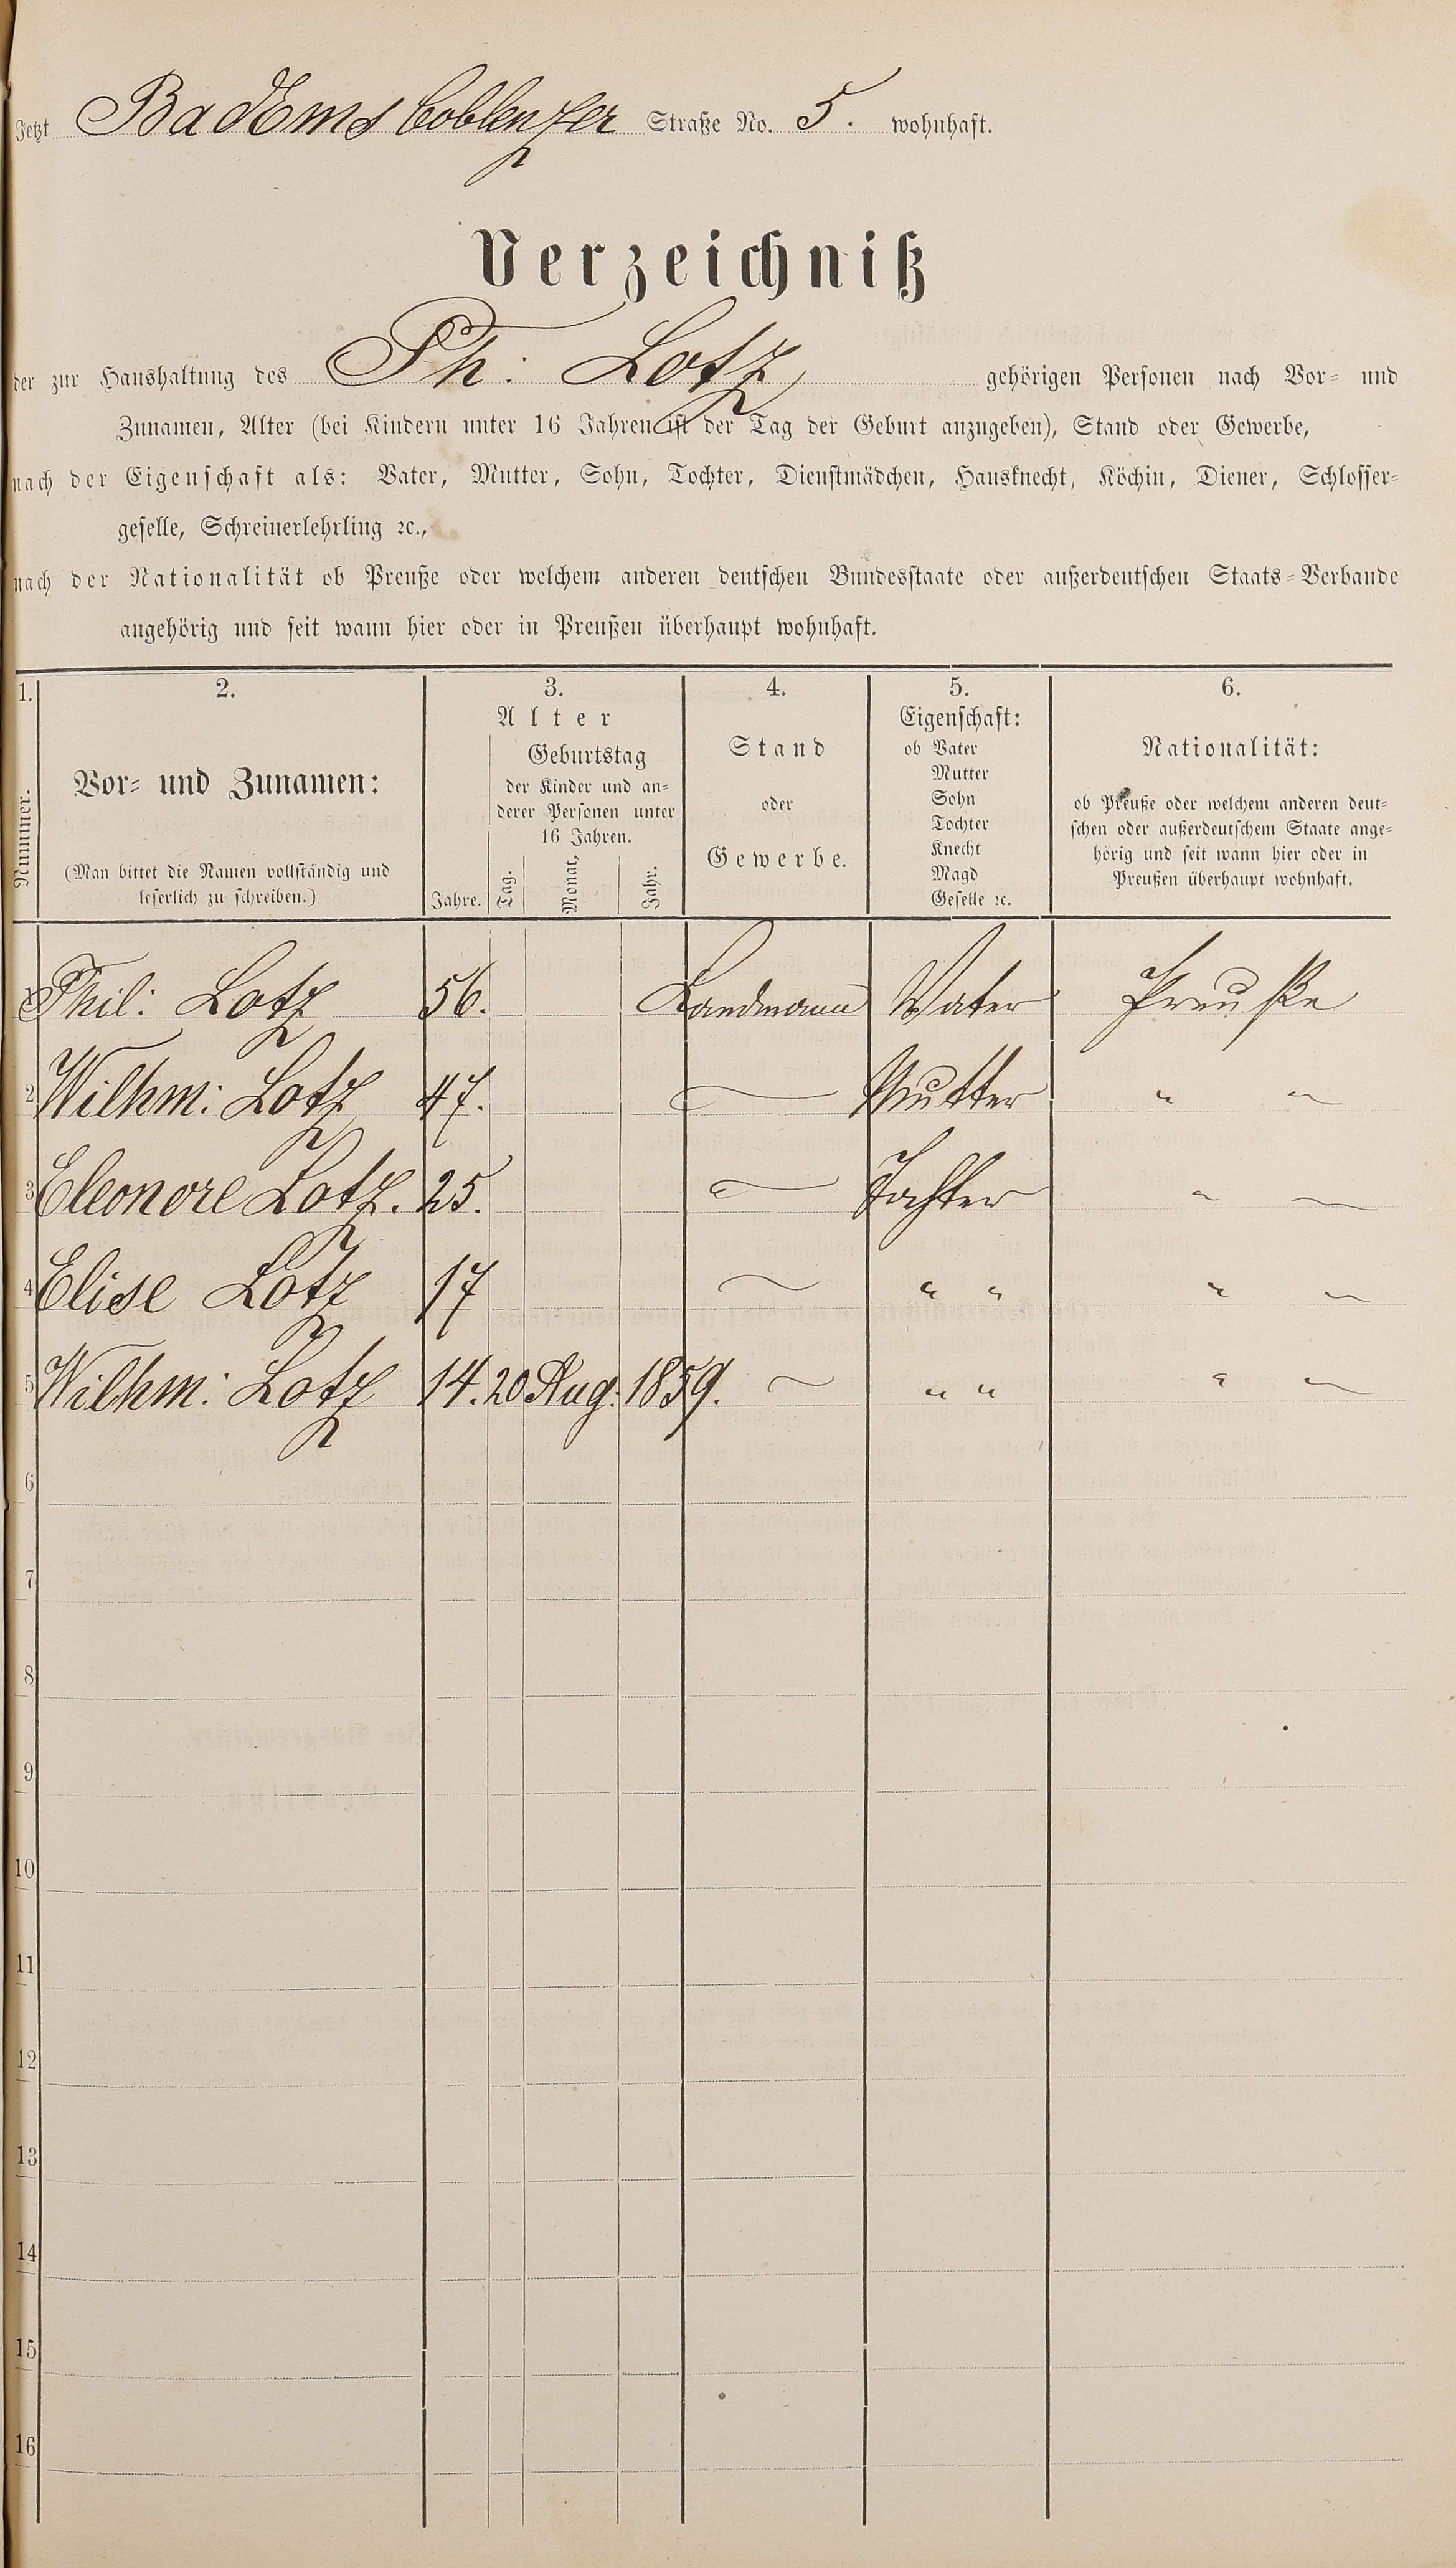 Jetzt Bad Ems Coblenzer Straße No. 5. wohnhaft.
Verzeichniß
der zur Haushaltung des Ph: Lotz gehörigen Personen nach Vor= und
Zunamen, Alter (bei Kindern unter 16 Jahren ist der Tag der Geburt anzugeben), Stand oder Gewerbe,
nach der Eigenschaft als: Vater, Mutter, Sohn, Tochter, Dienstmädchen, Hausknecht, Köchin, Diener, Schlosser=
geselle, Schreinerlehrling ꝛc.,
nach der Nationalität ob Preuße oder welchem anderen deutschen Bundesstaate oder außerdeutschen Staats=Verbande
angehörig und seit wann hier oder in Preußen überhaupt wohnhaft.
1. 2. 3. 4. 5. 6.
Nummer.
Vor= und Zunamen:
(Man bittet die Namen vollständig und
leserlich zu schreiben.)
Alter
Jahre.
Geburtstag
der Kinder und an=
derer Personen unter
16 Jahren.
Tag. Monat. Jahr.
Stand
oder
Gewerbe.
Eigenschaft:
ob Vater
Mutter
Sohn
Tochter
Knecht
Magd
Geselle ꝛc.
Nationalität:
ob Preuße oder welchem anderen deut=
schen oder außerdeutschem Staate ange=
hörig und seit wann hier oder in
Preußen überhaupt wohnhaft.
1 Phil: Lotz 56. Landmann Vater Preuße
2 Wilhm: Lotz 47. — Mutter " "
3 Eleonore Lotz. 25. — Tochter " "
4 Elise Lotz 17 — " " " "
5 Wilhm: Lotz 14. 20 Aug. 1859. — " " " "
6
7
8
9
10
11
12
13
14
15
16